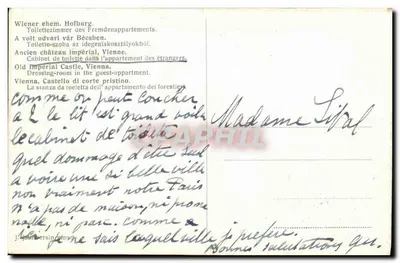 Wiener ehem. Hofburg.
Toilettezimmer des Fremdenappartements.
A volt udvari vár Bécsben.
Toilette-szoba az idegenlakosztályokból.
Ancien château impérial, Vienne.
Cabinet de toilette dans l'appartement des étrangers.
Old Imperial Castle, Vienna.
Dressing-room in the guest-appartment.
Vienna, Castello di corte pristino.
La stanza da toeletta dell' appartamento dei forestieri.
comme on peut coucher
a 2 le lit est grand voila
le cabinet de toilette
quel dommage d'être seul
a voire une si belle ville
non vraiment notre Paris
n'a pas de maison, ni prome
nade, ni parc. comme a
je ne sais laquel ville je prefere.
Bonnes salutations
Madame